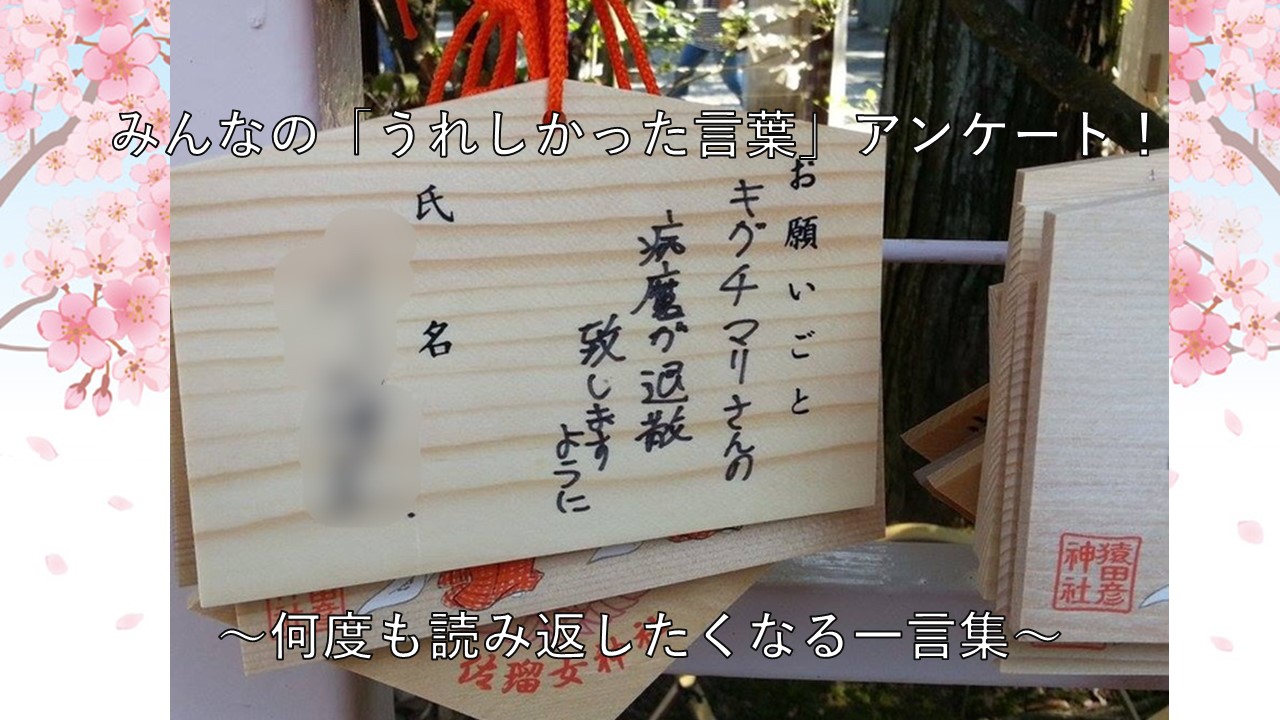 みんなの「うれしかった言葉」アンケート！
お願いごと
キグチマリさんの
病魔が退散
致します
ように
氏名
猿田彦
神社
～何度も読み返したくなる一言集～
佐瑠女神社